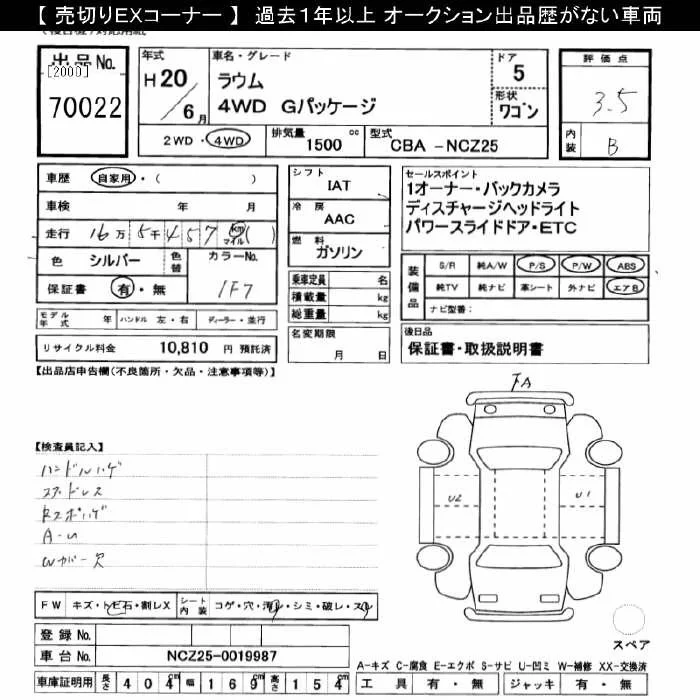 【 売切りEXコーナー 】 過去1年以上 オークション出品歴がない車両
出品No.
[2000]
70022
年式
H20
/6月
車名・グレード
ラウム
4WD Gパッケージ
ドア
5
形状
ワゴン
2WD・4WD
排気量 1500 cc
型式 CBA -NCZ25
評価点
3.5
内装 B
車歴 自家用・( )
車検 年 月
走行 16万 5千 4 5 7 kmマイル ( )
色 シルバー 色替
カラーNo.
1F7
保証書 有・無
シフト
IAT
冷房
AAC
燃料
ガソリン
乗車定員 名
積載量 kg
総重量 kg
名変期限
月 日
セールスポイント
1オーナー・バックカメラ
ディスチャージヘッドライト
パワースライドドア・ETC
装備品
S/R 純A/W P/S P/W ABS
純TV 純ナビ 革シート 外ナビ エアB
ナビ型番:
モデル年式 年 ハンドル 左・右 ディーラー・並行
リサイクル料金 10,810 円 預託済
後日品
保証書・取扱説明書
【出品店申告欄(不良箇所・欠品・注意事項等)】
FA
【検査員記入】
ハンドルハゲ
スタッドレス
RスポハゲA-U
Wカバー欠
U2
U1
FW キズ・トビ石・割レX
シート内装 コゲ・穴・汚レ・シミ・破レ・スレ
スペア
登録No.
車台No. NCZ25-0019987
A-キズ C-腐食 E-エクボ S-サビ U-凹ミ W-補修 XX-交換済
車庫証明用 長さ 404 幅 169 高さ 154
工具 有・無 ジャッキ 有・無